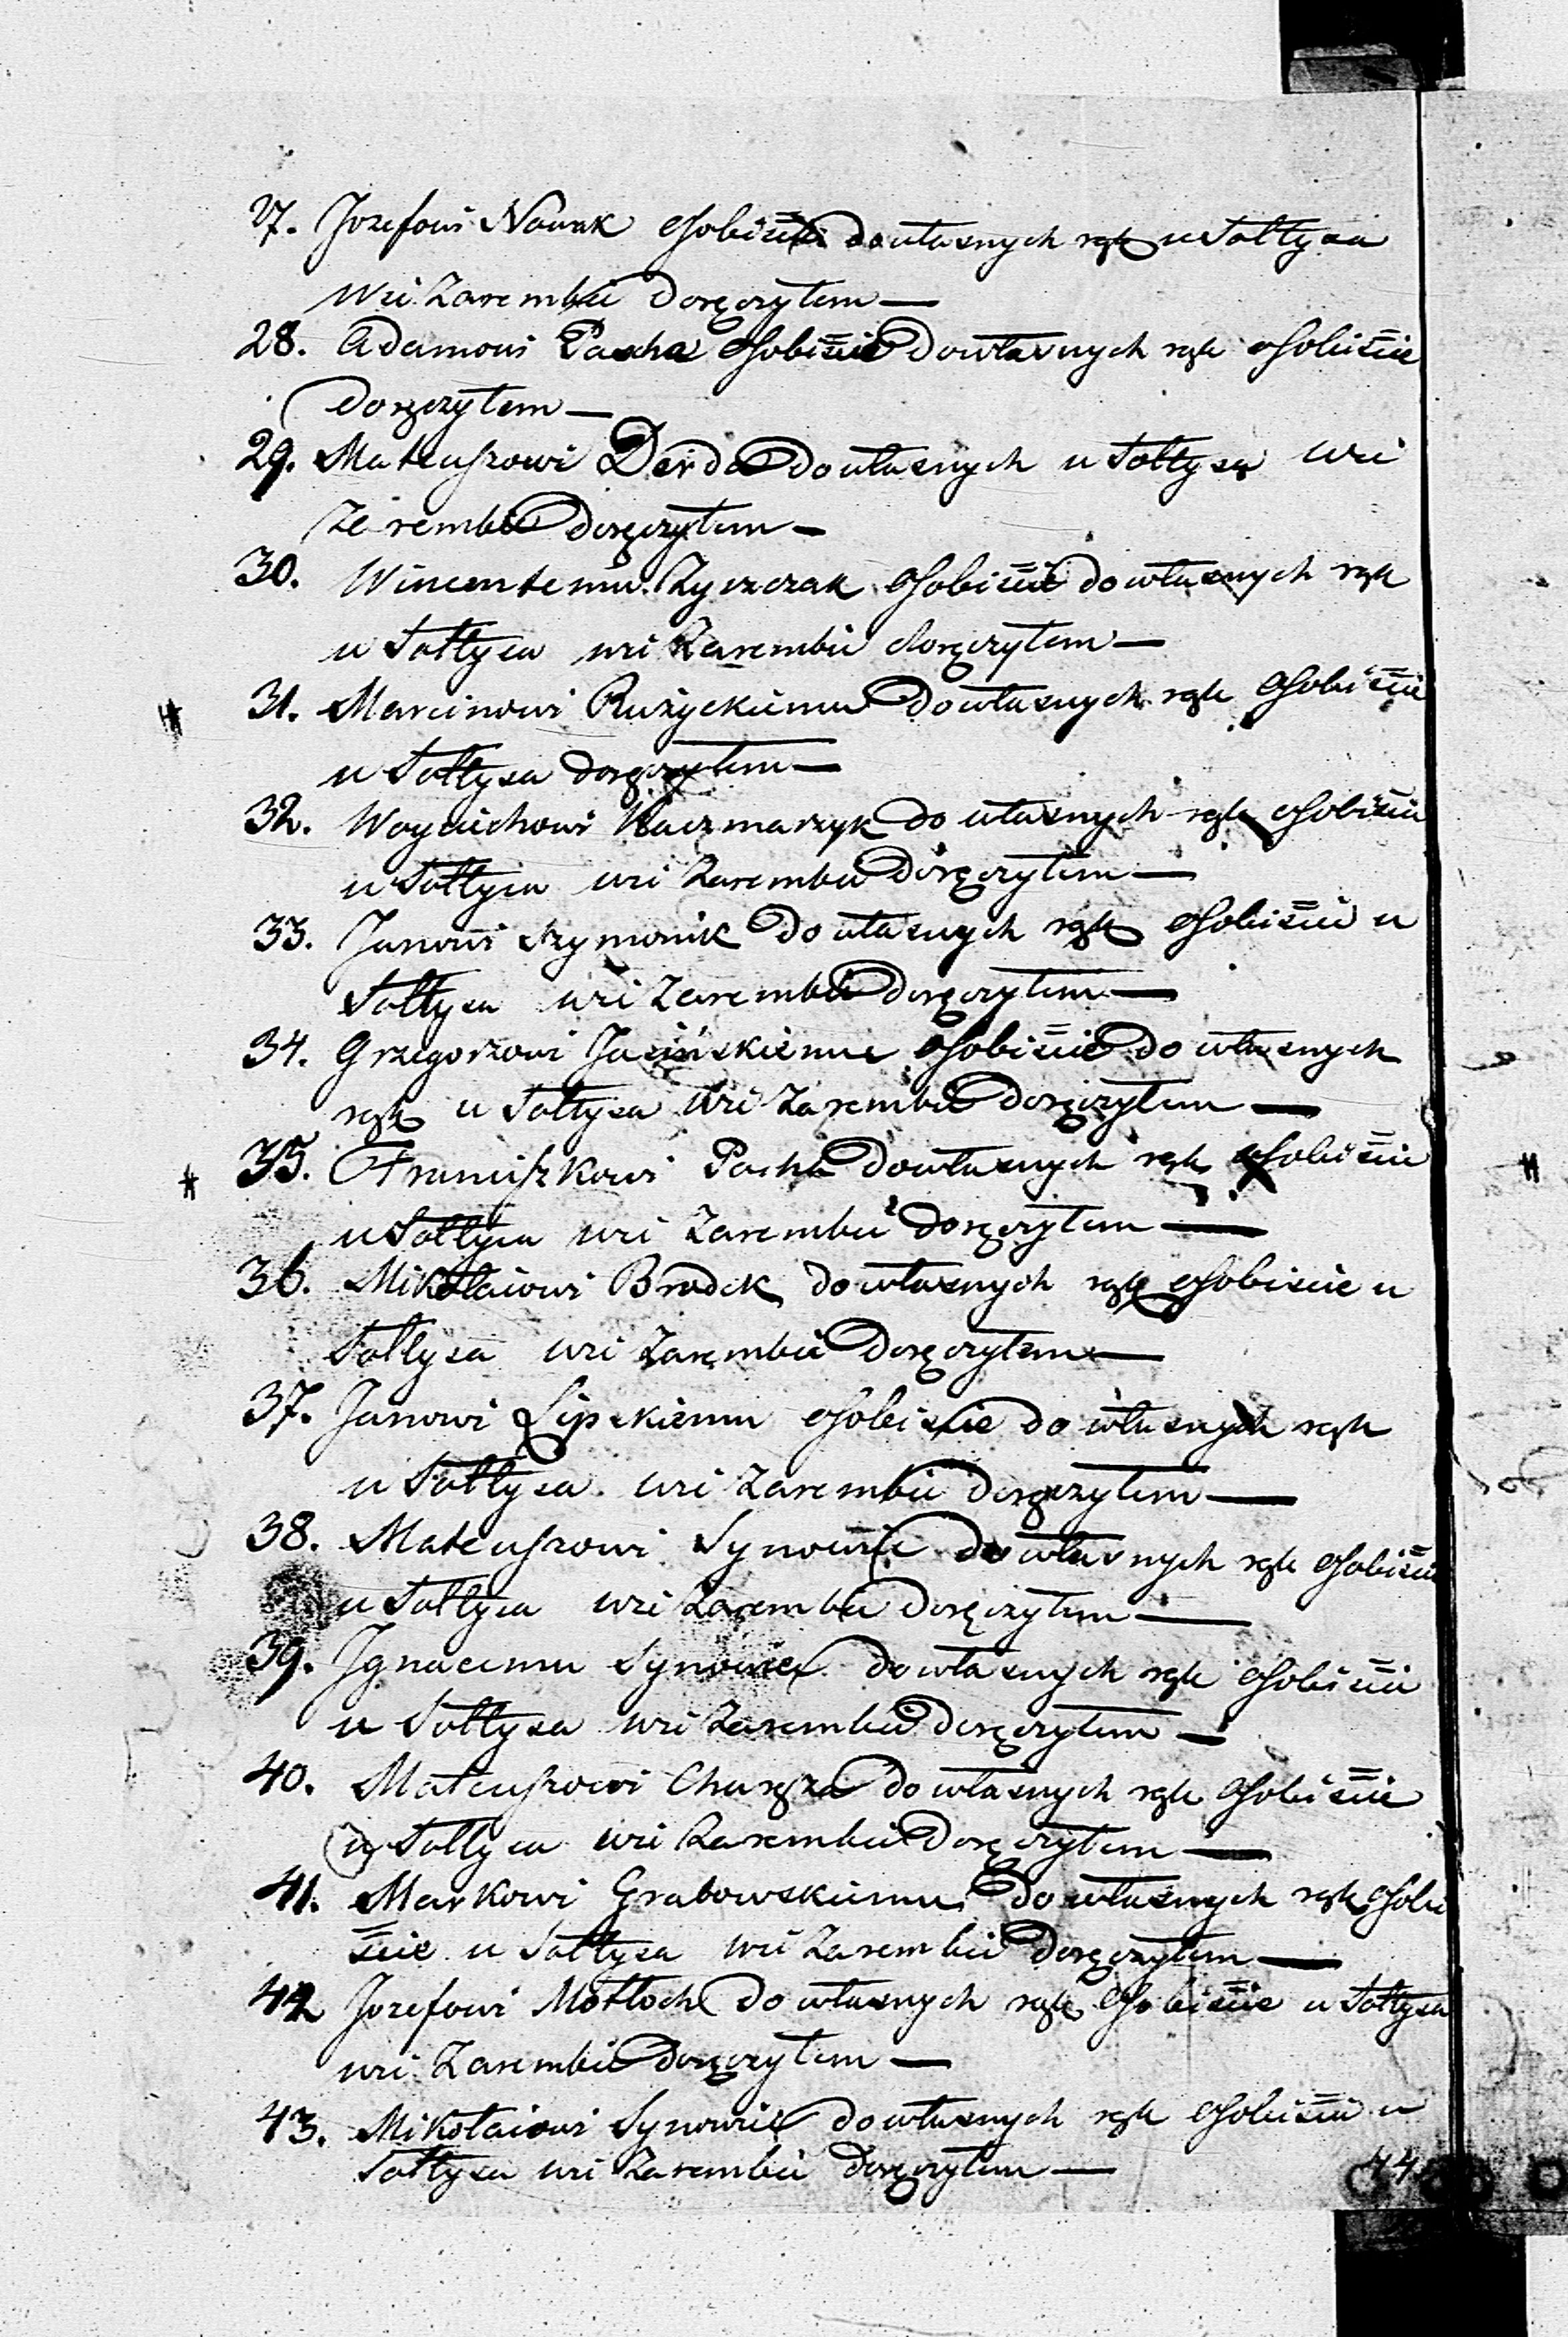 27. Jozefowi Nowak osobiście do własnych rąk u Sołtysa
wsi Zarembie doręczyłem —
28. Adamowi Pacha osobiście do własnych rąk osobiście
doręczyłem —
29. Mateuszowi Derda do własnych u Sołtysa wsi
Zarembie doręczyłem —
30. Wincentemu Zyszczak osobiście do własnych rąk
u Sołtysa wsi Zarembie doręczyłem —
31. Marcinowi Rużyckiemu do własnych rąk osobiście
u Sołtysa doręczyłem —
32. Woyciechowi Kaczmarzyk do własnych rąk osobiście
u Sołtysa wsi Zarembie doręczyłem —
33. Janowi Szymonik do własnych rąk osobiście u
Sołtysa wsi Zarembie doręczyłem —
34. Grzegorzowi Jasińskiemu osobiście do własnych
rąk u Sołtysa wsi Zarembie doręczyłem —
35. Franciszkowi Pacha do własnych rąk osobiście
u Sołtysa wsi Zarembie doręczyłem —
36. Mikołaiowi Bradek do własnych rąk osobiscie u
Sołtysa wsi Zarembie doręczyłem —
37. Janowi Lipskiemu osobiscie do własnych rąk
u Sołtysa wsi Zarembie doręczyłem —
38. Mateuszowi Synowiec do własnych rąk osobiście
u Sołtysa wsi Zarembie doręczyłem —
39. Jgnacemu Synowiec do własnych rąk osobiście
u Sołtysa wsi Zarembie doręczyłem —
40. Mateuszowi Churąza do własnych rąk osobiście
u Sołtysa wsi Zarembie doręczyłem —
41. Markowi Grabowskiemu do własnych rąk osobi
ście u Sołtysa wsi Zarembie doręczyłem —
42 Jozefowi Motłoch do własnych rąk osobiście u Sołtysa
wsi Zarembie doręczyłem —
43. Mikołaiowi Synowiec do własnych rąk osobiście u
Sołtysa wsi Zarembie doręczyłem —
44